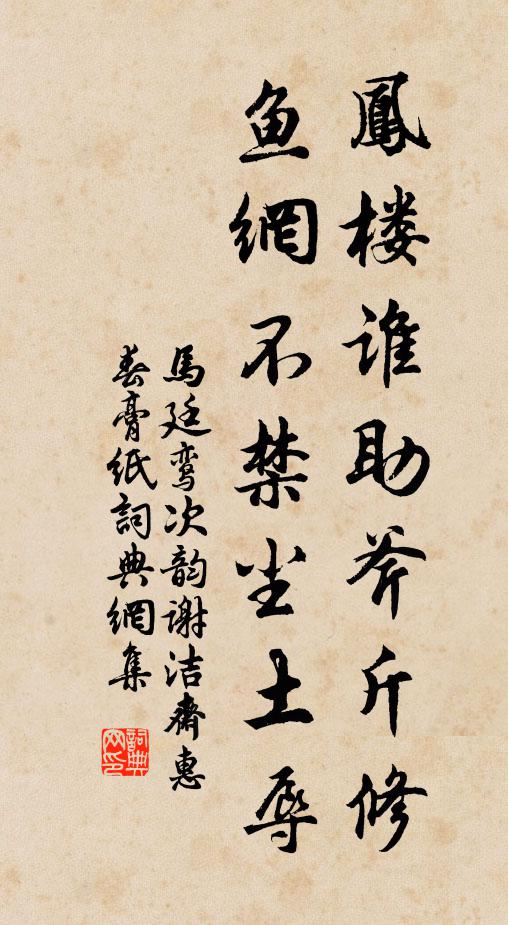 鳳楼谁助斧斤修
鱼網不禁尘土辱
馬廷鸾次韵谢洁齋惠
春膏纸詞典網集
詞典
网印